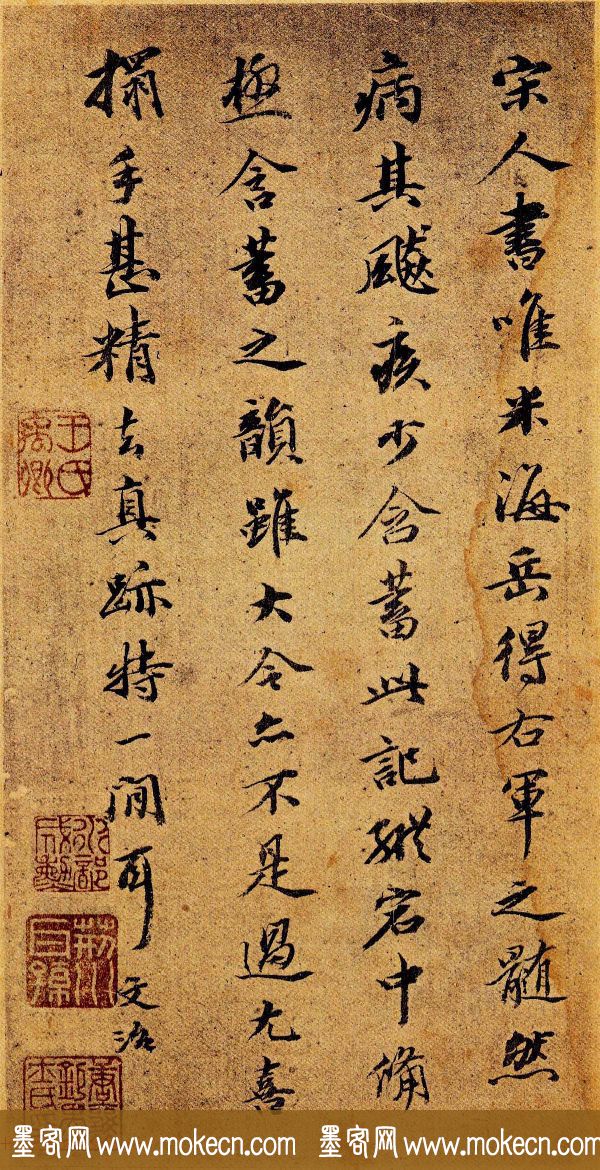 宋人書唯米海岳得右軍之髓然
病其飈疾少含蓄此記縱宕中備
極含蓄之韻雖大令亦不是過尤喜
搨手甚精去真跡特一間耳 文治
王氏禹卿
墨客网 www.mokecn.com 墨客网 www.mokecn.com